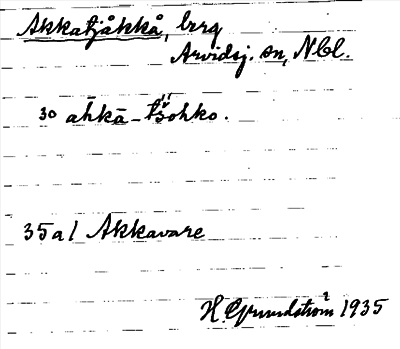 Akkatjåkkå, brrg
Arvidsj. sn, Nbl.
30 ahkā-tš̌ohko.
35a1 Akkavare
H. Grundström 1935